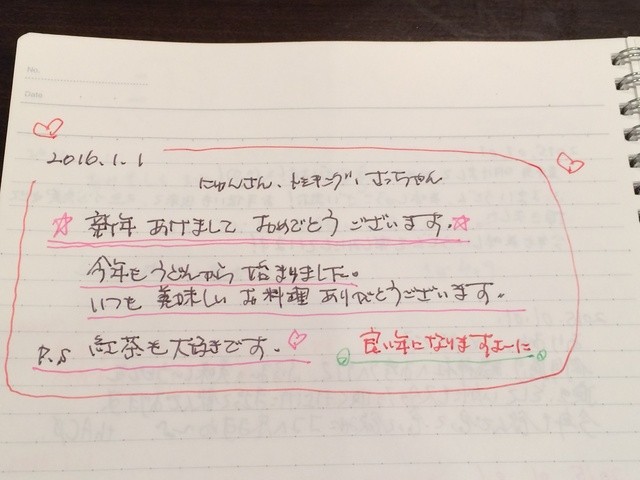 No.
Date
2016.1.1
にゃんさん、トミキング、さっちゃん
☆新年 あけまして おめでとう ございます。☆
今年もうどんから始まりました。
いつも 美味しい お料理 ありがとうございます。
P.S 紅茶も大好きです。♡
良い年になりますよーに